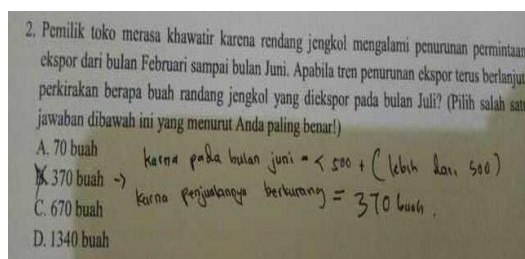 2. Pemilik toko merasa khawatir karena rendang jengkol mengalami penurunan permintaan
ekspor dari bulan Februari sampai bulan Juni. Apabila tren penurunan ekspor terus berlanjut
perkirakan berapa buah randang jengkol yang diekspor pada bulan Juli? (Pilih salah sat
jawaban dibawah ini yang menurut Anda paling benar!)
A. 70 buah
karna pada bulan juni = < 500 + ( lebih dari 500 )
B. 370 buah ->
karna penjualannya berkurang = 370 buah .
C. 670 buah
D. 1340 buah